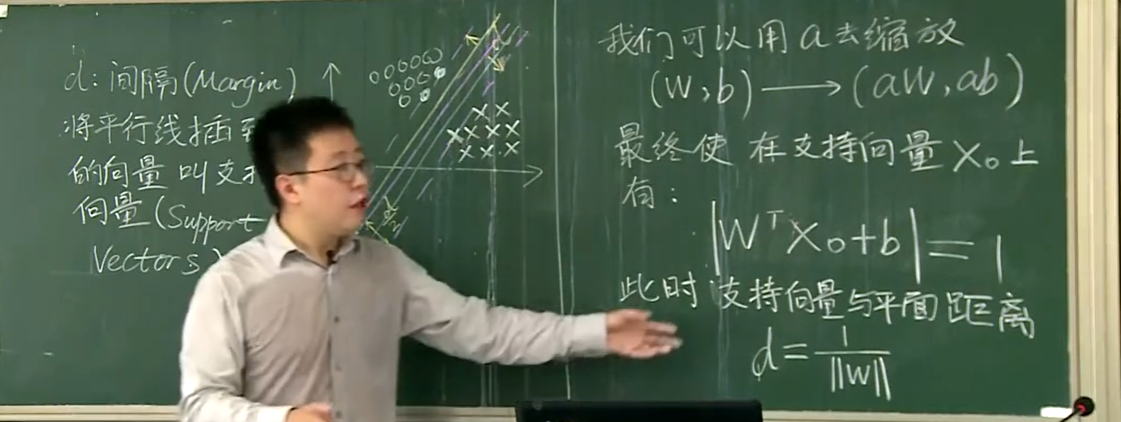 d: 间隔(Margin)
将平行线插到
的向量叫支持
向量(Support
Vectors)
d
我们可以用a去缩放
(W,b)⟶(aW,ab)
最终使在支持向量X₀上
有:
|WᵀX₀+b|=1
此时支持向量与平面距离
d=1/‖W‖